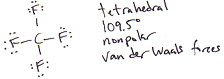 F
F C F
F
tetrahedral
109.5°
nonpolar
van der Waals forces